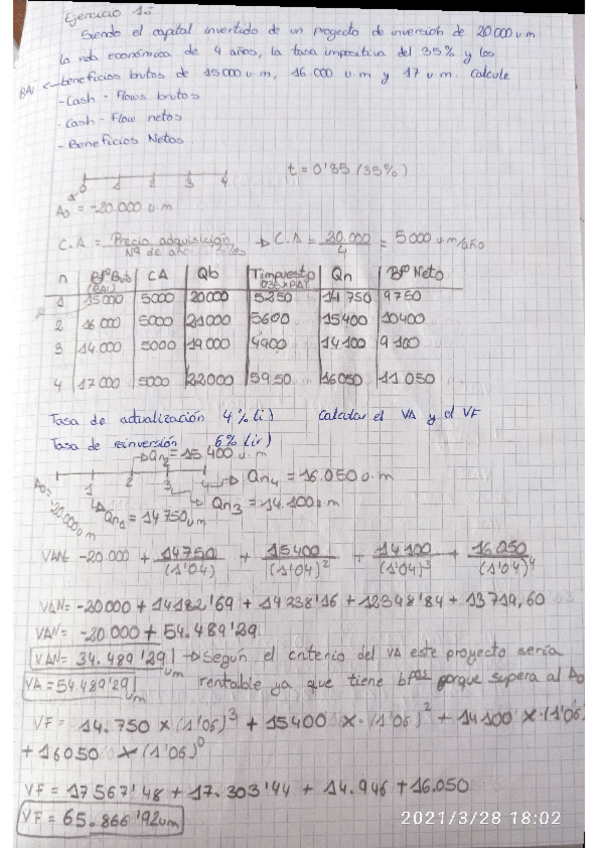 Ejercicio 1:
Siendo el capital invertido de un proyecto de inversión de 20000 u.m
la vida económica de 4 años, la tasa impositiva del 35% y los
BAi ← beneficios brutos de 15000 u.m, 16.000 u.m y 17 u.m. calcule
- Cash - Flows brutos
- Cash - Flow netos
- Beneficios Netos
0 1 2 3 4 t = 0'35 (35%)
A₀ = -20.000 u.m
C.A = Precio adquisición / Nº de años útiles → C.A = 20.000 / 4 = 5000 u.m/año
n Bfº Bruto (BAi) CA Qb T.impuesto Qn Bfº Neto
1 15000 5000 20000 5250 14750 9750
2 16000 5000 21000 5600 15400 10400
3 14000 5000 19000 4900 14100 9100
4 17000 5000 22000 5950 16050 11050
Tasa de actualización 4% (i) Calcular el VA y el VF
Tasa de reinversión 6% (ir)
→ Qn₂ = 15.400 u.m
A₀ = -20.000 u.m 1 2 3 4 → Qn₄ = 16.050 u.m
→ Qn₃ = 14.100 u.m
Qn₁ = 14750 um
VAN = -20.000 + 14750/(1'04) + 15400/(1'04)² + 14100/(1'04)³ + 16050/(1'04)⁴
VAN = -20000 + 14182'69 + 14238'16 + 12348'84 + 13719,60
VAN = -20000 + 54.489'29
VAN = 34.489'29 um → Según el criterio del VA este proyecto sería
VA = 54.489'29 um rentable ya que tiene bfºs porque supera al A₀
VF = 14.750 x (1'06)³ + 15400 x (1'06)² + 14100 x (1'06)
+ 16050 x (1'06)⁰
VF = 17567'48 + 17.303'44 + 14.946 + 16.050
VF = 65.866'92 um
2021/3/28 18:02